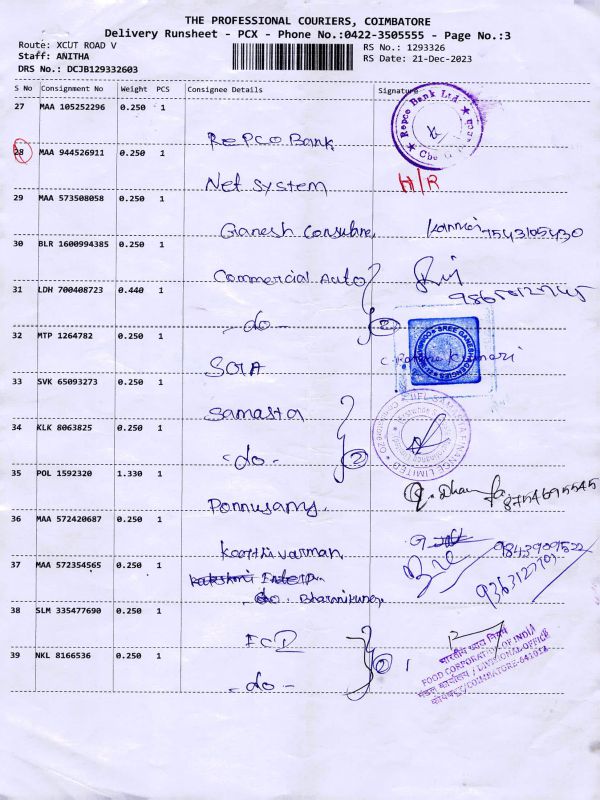 THE PROFESSIONAL COURIERS, COIMBATORE
Delivery Runsheet - PCX - Phone No.:0422-3505555 - Page No.:3
Route: XCUT ROAD V
RS No.: 1293326
Staff: ANITHA
RS Date: 21-Dec-2023
DRS No.: DCJB129332603
S No Consignment No Weight PCS Consignee Details Signature
27 MAA 105252296 0.250 1
Repco Bank
Repco Bank Ltd
28 MAA 944526911 0.250 1
Net System H/R
29 MAA 573508058 0.250 1
Ganesh
30 BLR 1600994385 0.250 1
Commercial Auto
31 LDH 700408723 0.440 1
- do - 2
32 MTP 1264782 0.250 1
SREE GANESH AGENCIES
33 SVK 65093273 0.250 1
Samasta
34 KLK 8063825 0.250 1
- do - 2
35 POL 1592320 1.330 1
Ponnusamy 8754695545
36 MAA 572420687 0.250 1
Keerthivarman
37 MAA 572354565 0.250 1
do.
38 SLM 335477690 0.250 1
FCI
39 NKL 8166536 0.250 1
- do - 2
भारतीय खाद्य निगम
FOOD CORPORATION OF INDIA
मंडल कार्यालय / DIVISIONAL OFFICE
कोयंबतूर/COIMBATORE-641018